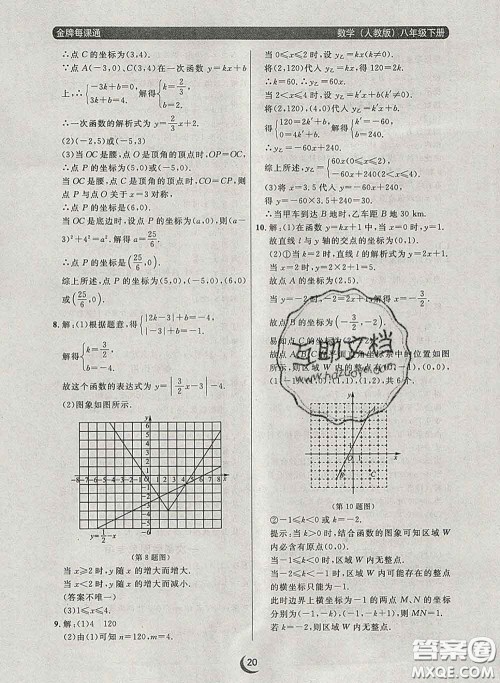 金牌每课通
数学（人教版）八年级下册
∴点 C 的坐标为(3,4).
∵点 A(-3,0),点 C(3,4)在一次函数 y=kx+b
上,∴{-3k+b=0, 3k+b=4. 解得{k=2/3, b=2.
∴一次函数的解析式为 y=2/3x+2.
(2)(-2,5)或(-5,3)
(3)当 OC 是腰,点 O 是顶角的顶点时,OP=OC,则
点 P 的坐标为(5,0)或(-5,0);
当 OC 是腰,点 C 是顶角的顶点时,CO=CP,则点
P 与点 O 关于 x=3 对称,
∴点 P 的坐标为(6,0).
当 OC 是底边时,设点 P 的坐标为(a,0),则(a-
3)²+4²=a². 解得 a=25/6.
∴点 P 的坐标为(25/6,0).
综上所述,点 P 的坐标为(5,0)或(-5,0)或(6,0)
或(25/6,0).
8.解:(1)根据题意,得{|2k-3|+b=-4, |-3|+b=-1.
解得{k=3/2, b=-4.
故这个函数的表达式为 y=|3/2x-3|-4.
(2)图象如图所示.
y
6
5
4
3
2
1
x
y=1/2x-3
(第 8 题图)
当 x≥2 时,y 随 x 的增大而增大,
当 x≤2 时,y 随 x 的增大而减小.
(答案不唯一)
9.解:(1)4 120
(2)由(1)可知 n=120,m=4.
当 0≤x≤2 时,设 y乙=kx.
将(2,120)代入 y乙=kx,得 120=2k.
∴k=60. ∴y乙=60x.
当 2<x≤4 时,设 y乙=k′x+b(k′≠0).
将(2,120),(4,0)代入 y乙=k′x+b,
得{120=2k′+b, 0=4k′+b. 解得{k′=-60, b=240.
∴y乙=-60x+240.
综上所述,y乙={60x(0≤x≤2), -60x+240(2<x≤4).
(3)将 x=3.5 代入 y=-60x+240,
得 y=30.
∴当甲车到达 B 地时,乙车距 B 地 30 km.
10.解:(1)在函数 y=kx+1 中,当 x=0 时,y=1.
故直线 l 与 y 轴的交点的坐标为(0,1).
(2)①当 k=2 时,直线 l 的解析式为 y=2x+1.
故点 A 的坐标为(2,5).
当 y=-2 时,-2=2x+1,
解得 x=-3/2.
故点 B 的坐标为(-3/2,-2).
互助文档
(第 10 题图)
②-1≤k<0 或 k=2
提示:当-1≤k<0 时,结合函数的图象可知区域 W
内必含有原点(0,0).
当 k<-1 时,区域 W 内可能存在的整点的
横坐标只能为-1.
此时边界上横坐标为-1 的两点 M、N 的坐标
分别为(-1,-k+1),(-1,k),则 MN=1.
20
答案圈
MXQE.COM